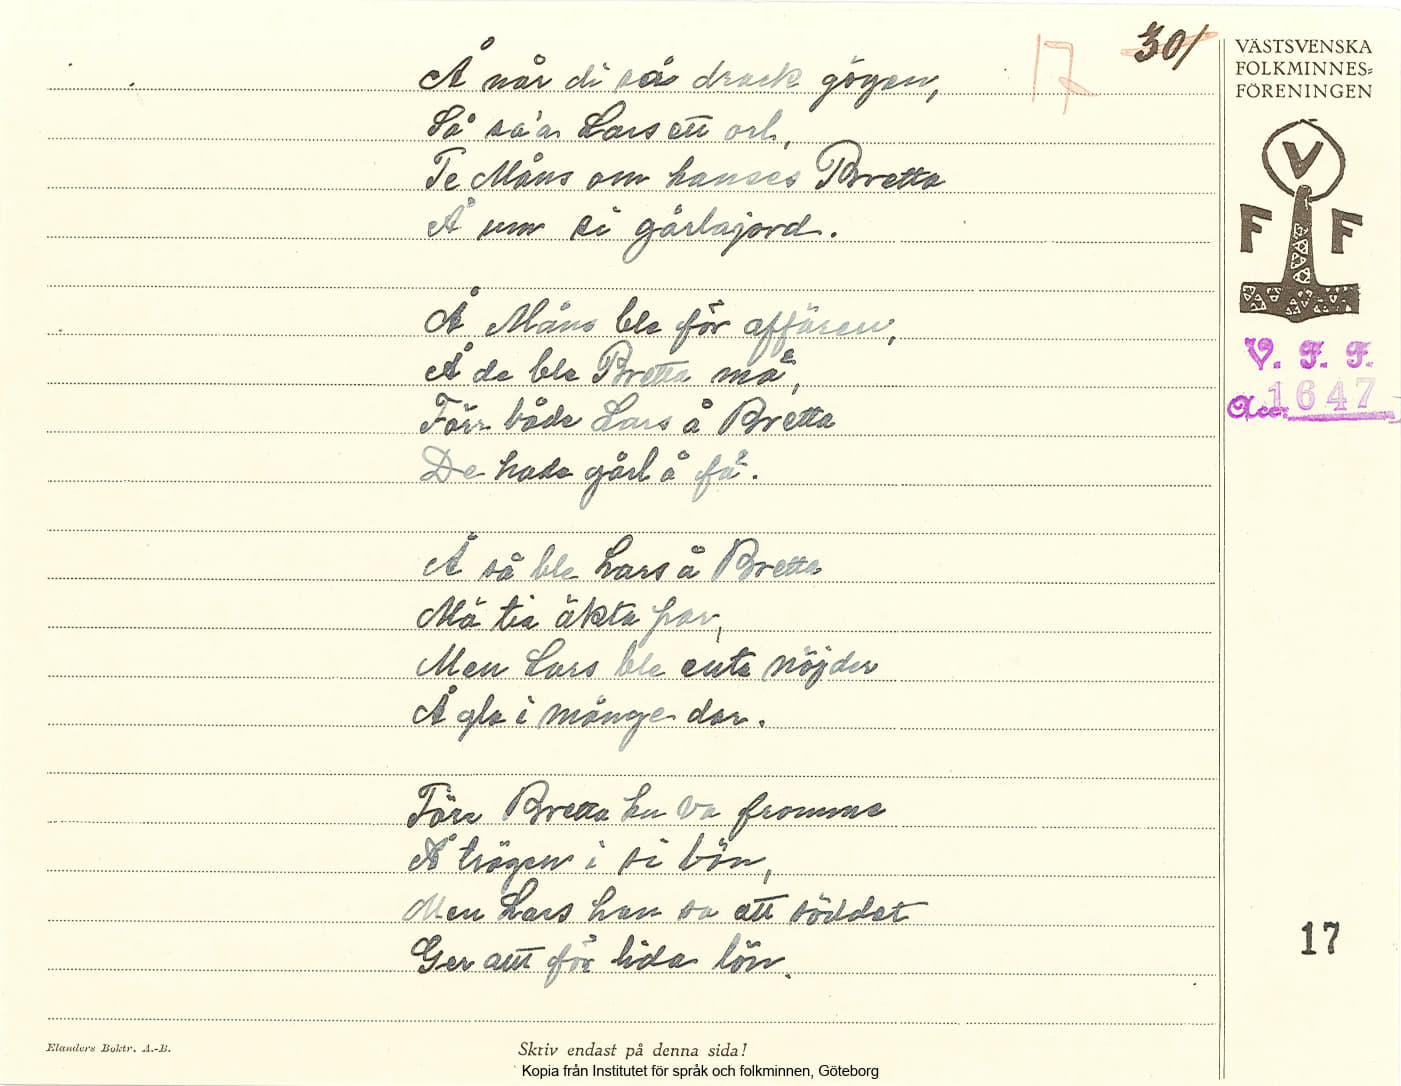 30/
17
VÄSTSVENSKA
FOLKMINNES=
FÖRENINGEN
V
F F
V. F. F.
Acc. 1647
Å når di så drack gögen,
Så sa'a Lars ett ord,
Te Måns om hanses Bretta
Å um si gårlajord.
Å Måns ble för affären,
Å de ble Bretta må,
Förr både Lars å Bretta
De hade gårl å få.
Å så ble Lars å Bretta
Må tia äkta par,
Men Lars ble ente nöjder
Å gla i månge dar.
Förr Bretta hu va fromme
Å trögen i si bön,
Men Lars han sa att söddet
Ger att för lida lön.
17
Elanders Boktr. A.-B.
Skriv endast på denna sida!
Kopia från Institutet för språk och folkminnen, Göteborg